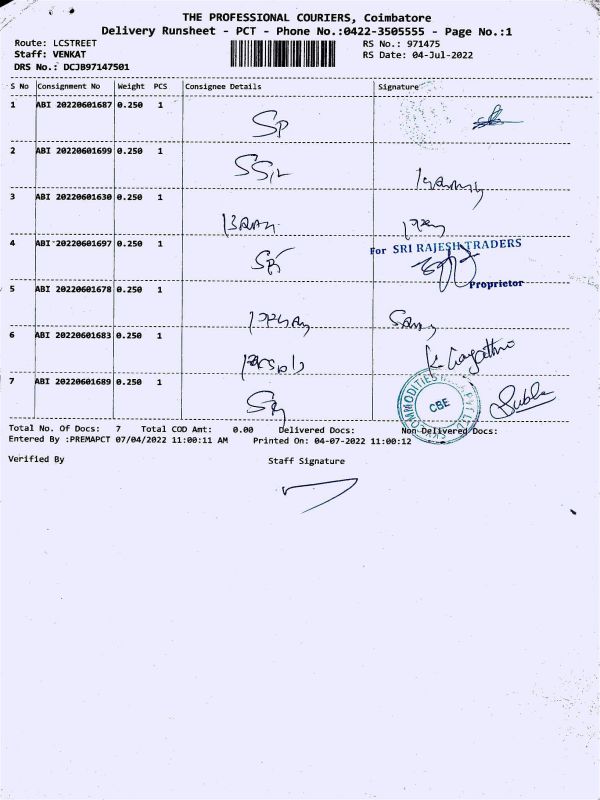 THE PROFESSIONAL COURIERS, Coimbatore
Delivery Runsheet - PCT - Phone No.:0422-3505555 - Page No.:1
Route: LCSTREET RS No.: 971475
Staff: VENKAT RS Date: 04-Jul-2022
DRS No.: DCJB97147501
S No Consignment No Weight PCS Consignee Details Signature
1 ABI 20220601687 0.250 1
SP
2 ABI 20220601699 0.250 1
3 ABI 20220601630 0.250 1
4 ABI 20220601697 0.250 1
For SRI RAJESH TRADERS
Proprietor
5 ABI 20220601678 0.250 1
6 ABI 20220601683 0.250 1
K. Gayathri
7 ABI 20220601689 0.250 1
CBE
Total No. Of Docs: 7 Total COD Amt: 0.00 Delivered Docs: Non-Delivered Docs:
Entered By :PREMAPCT 07/04/2022 11:00:11 AM Printed On: 04-07-2022 11:00:12
Verified By Staff Signature